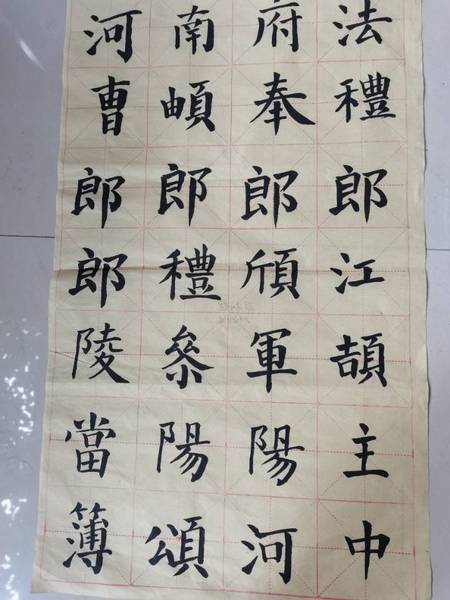 河南府法
曹頔奉禮
郎郎郎郎
郎禮頎江
陵參軍頡
當陽陽主
簿頌河中